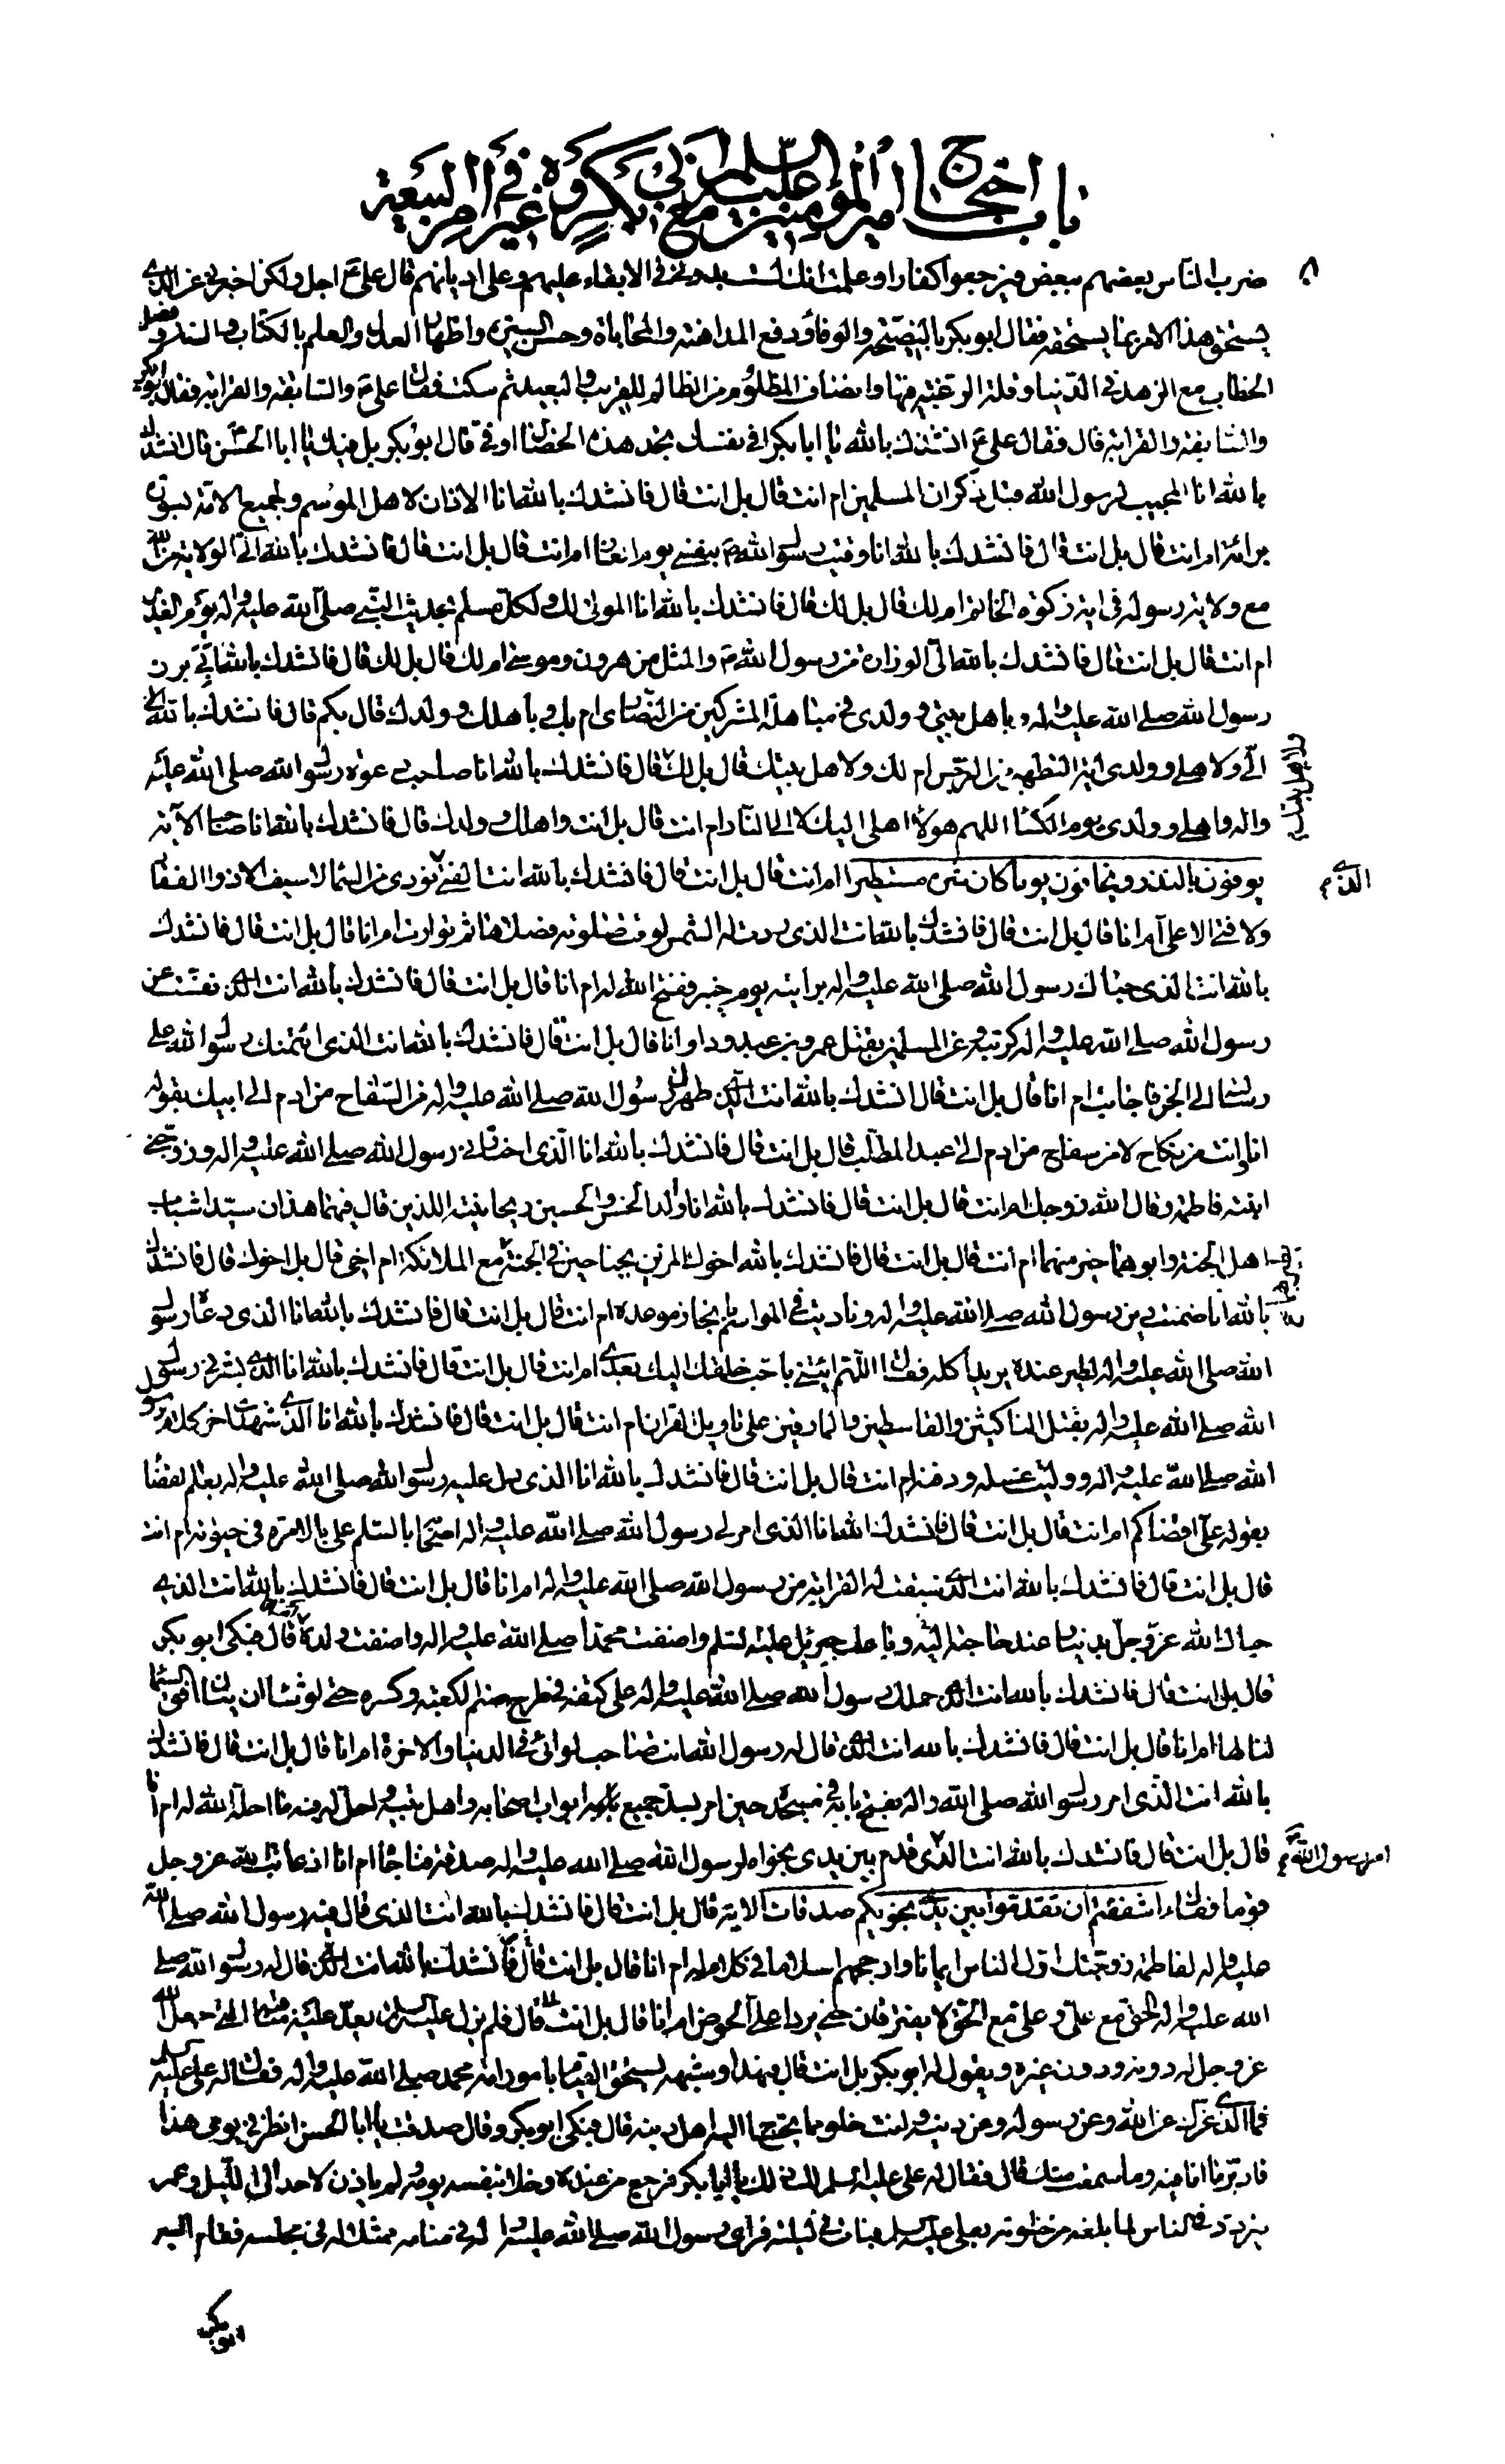 باب احتجاج امير المؤمنين عليه السلم مع ابى بكر وغيره فى امر البيعة
ضرب الناس بعضهم ببعض فيرجعوا كفارا وعلمت انك لست بدونى فى الابقاء عليهم وعلى اديانهم قال على ع اجل ولكن اخبرنى عن الذى
يستحق هذا الامر بما يستحقه فقال ابو بكر بالنصيحة والوفا ودفع المداهنة والمحاباة وحسن السيرة واظهار العدل والعلم بالكتاب والسنة وفصل
الخطاب مع الزهد فى الدنيا وقلة الرغبة فيها وانصاف المظلوم من الظالم للقريب والبعيد ثم سكت فقال على ع والسابقة والقرابة فقال ابو بكر
والسابقة والقرابة قال فقال على ع انشدك بالله يا ابا بكر افى نفسك تجد هذه الخصال او فى قال ابو بكر بل فيك يا ابا الحسن قال انشدك
بالله انا المجيب لرسول الله قبل ذكران المسلمين ام انت قال بل انت قال فانشدك بالله انا الاذان لاهل الموسم ولجميع الامة بسورة
برائة ام انت قال بل انت قال فانشدك بالله انا وقيت رسول الله ص بنفسى يوم الغار ام انت قال بل انت قال فانشدك بالله الى الولاية من الله
مع ولاية رسوله فى اية زكوة الخاتم ام لك قال بل لك قال فانشدك بالله انا المولى لك ولكل مسلم بحديث النبى صلى الله عليه واله يوم الغدير
ام انت قال بل انت قال فانشدك بالله الى الوزارة من رسول الله ص والمثل من هرون وموسى ام لك قال بل لك قال فانشدك بالله ابى برز
رسول الله صلى الله عليه واله وباهل بيتى وولدى فى مباهلة المشركين من النصارى ام بك وباهلك وولدك قال بكم قال فانشدك بالله
الى ولاهلى وولدى اية التطهير من الرجس ام لك ولاهل بيتك قال بل لك قال فانشدك بالله انا صاحب دعوة رسول الله صلى الله عليه
واله واهلى وولدى يوم الكسا اللهم هولاء اهلى اليك لا الى النار ام انت قال بل انت واهلك وولدك قال فانشدك بالله انا صاحب الآية
يوفون بالنذر ويخافون يوما كان شره مستطيرا ام انت قال بل انت قال فانشدك بالله انت الفتى نودى من السما لا سيف الا ذو الفقار
الذى م
ولا فتى الا على ام انا قال بل انت قال فانشدك بالله انت الذى ردت له الشمس لوقت صلوته فصلاها ثم توارت ام انا قال بل انت قال فانشدك
بالله انت الذى حباك رسول الله صلى الله عليه واله برايته يوم خيبر ففتح الله له ام انا قال بل انت قال فانشدك بالله انت الذى نفست عن
رسول الله صلى الله عليه واله كربته وعن المسلمين بقتل عمرو بن عبد ود او انا قال بل انت قال فانشدك بالله انت الذى ائتمنك رسول الله على
رسالته الى الجن فاجابت ام انا قال بل انت قال انشدك بالله انت الذى طهرك رسول الله صلى الله عليه واله من السفاح من ادم الى ابيك بقوله
انا وانت من نكاح لا من سفاح من ادم الى عبد المطلب قال بل انت قال فانشدك بالله انا الذى اختارنى رسول الله صلى الله عليه واله وزوجنى
ابنته فاطمة وقال الله زوجك ام انت قال بل انت قال فانشدك بالله انا والد الحسن والحسين ريحانتيه اللذين قال فيهما هذان سيدا شباب
اهل الجنة وابوهما خير منهما ام انت قال بل انت قال فانشدك بالله اخوك المزين بجناحين فى الجنة مع الملائكة ام اخى قال بل اخوك قال فانشدك
بالله انا ضمنت دين رسول الله صلى الله عليه واله وناديت فى المواسم بانجاز موعده ام انت قال بل انت قال فانشدك بالله انا الذى دعاه رسول
الله صلى الله عليه واله لطير عنده يريد اكله فقال اللهم ايتنى باحب خلقك اليك بعدى ام انت قال بل انت قال فانشدك بالله انا الذى بشرنى رسول
الله صلى الله عليه واله بقتل الناكثين والقاسطين والمارقين على تاويل القران ام انت قال بل انت قال فانشدك بالله انا الذى شهدت اخر كلام رسول
الله صلى الله عليه واله ووليت غسله ودفنه ام انت قال بل انت قال فانشدك بالله انا الذى دل عليه رسول الله صلى الله عليه واله بعلم القضا
بقوله على اقضاكم ام انت قال بل انت قال فانشدك الله انا الذى امر لى رسول الله صلى الله عليه واله اصحابه بالسلم على بالامرة فى حيوته ام انت
قال بل انت قال فانشدك بالله انت الذى سبقت له القرابة من رسول الله صلى الله عليه واله ام انا قال بل انت قال فانشدك بالله انت الذى
حباك الله عز وجل بدينار عند حاجته اليه وباعك جبرئيل عليه السلم واضفت محمدا صلى الله عليه واله واضفت ولده قال فبكى ابو بكر
قال بل انت قال فانشدك بالله انت الذى حملك رسول الله صلى الله عليه واله على كتفه فى طرح صنم الكعبة وكسره حتى لو شاء ان ينال افق السما
لنالها ام انا قال بل انت قال فانشدك بالله انت الذى قال له رسول الله انت صاحب لوائى فى الدنيا والاخرة ام انا قال بل انت قال فانشدك
بالله انت الذى امر رسول الله صلى الله واله بفتح بابه فى مسجده حين امر بسد جميع ابواب اصحابه واهل بيته واحل له فيه ما احله الله له ام انا
قال بل انت قال فانشدك بالله انت الذى قدم بين يدى نجواه لرسول الله صلى الله عليه واله صدقة فناجاه ام انا اذ عاتب الله عز وجل
امر رسول الله ص م
قوما فقال ءاشفقتم ان تقدموا بين يدى نجويكم صدقات الاية قال بل انت قال فانشدك بالله انت الذى قال فيه رسول الله صلى الله
عليه واله لفاطمة زوجتك اول الناس ايمانا وارجحهم اسلاما فى كلام له ام انا قال بل انت قال فانشدك بالله انت الذى قال له رسول الله صلى
الله عليه واله الحق مع على وعلى مع الحق لا يفترقان حتى يردا على الحوض ام انا قال بل انت قال فلم يزل عليه السلم يعد عليه مناقبه التى جعل الله
عز وجل له دونه ودون غيره ويقول له ابو بكر بل انت قال فبهذا وشبهه يستحق القيام بامور امة محمد صلى الله عليه واله فقال له على عليه السلم
فما الذى غرك عن الله وعن رسوله وعن دينه وانت خلو مما يحتاج اليه اهل دينه قال فبكى ابو بكر وقال صدقت يا ابا الحسن انظرنى يومى هذا
فادبر ما انا فيه وما سمعت منك قال فقال له على عليه السلم لك ذلك يا ابا بكر فرجع من عنده وخلا بنفسه يومه لم ياذن لاحد الى الليل وعمر
يتردد فى الناس لما بلغه من خلوته بعلى عليه السلم فبات فى ليلته فراى رسول الله صلى الله عليه واله فى منامه ممثلا له فى مجلسه فقام اليه
ابو بكر